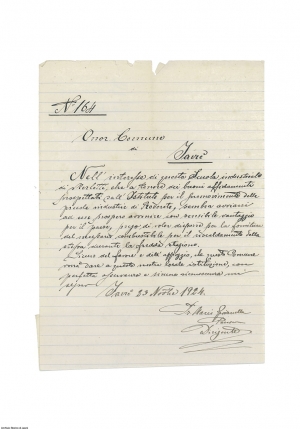 No 164
Onor Comune
di
Javrè
Nell' interesse di questa Scuola industriale
di Merletti, che a tenore dei buoni affidamenti
prospettati dall' Istituto per il promovimento delle
piccole industrie di Rovereto, sembra avviarsi
ad un prospero avvenire con sensibile vantaggio
per il paese, prego di voler disporre per la fornitura
del necessario combustibile per il riscaldamento della
stufa durante la fredda stagione.
del favore e dell' appoggio, che questo Comune
vorrà dare a questa nostra locale istituzione, con
perfetta osservanza
segno
Javrè 23 Novbre 1924.
Dirigente